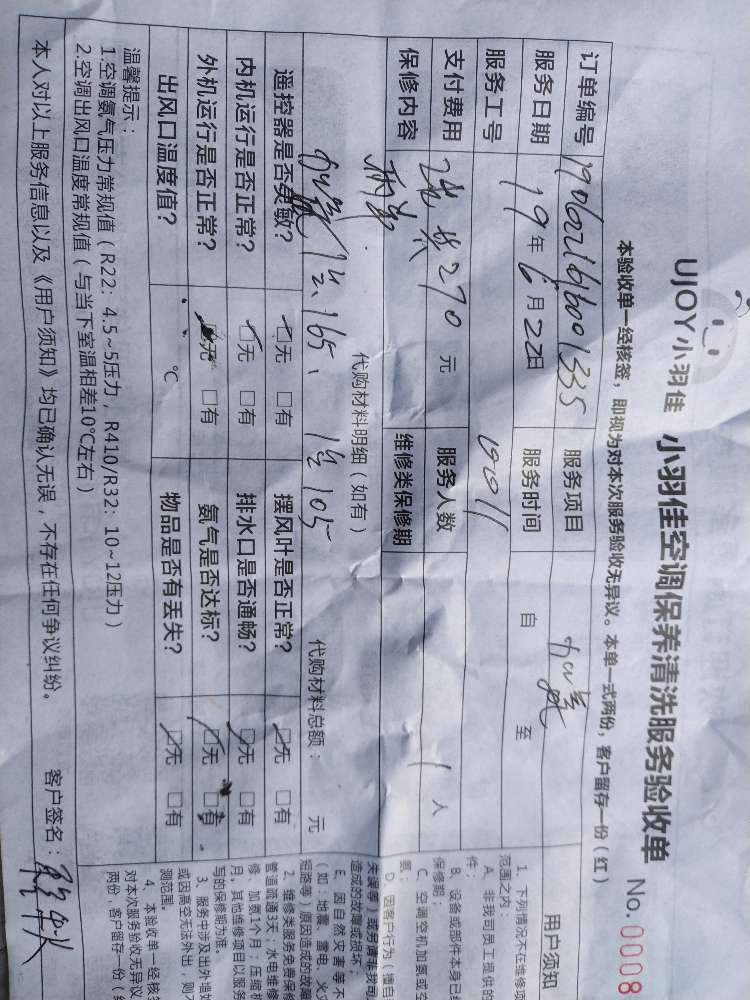 UJOY小羽佳 小羽佳空调保养清洗服务验收单 No.0008
本验收单一经核签，即视为对本次服务验收无异议。本单一式两份，客户留存一份（红）
订单编号 服务项目 加氟
服务日期 19年6月22日 服务时间 自 至
服务工号 1991
支付费用 270元 服务人数 1人
保修内容 维修类保修期
代购材料明细（如有） 代购材料总额： 元
加氟 165、 105
遥控器是否灵敏？ □无 □有 摆风叶是否正常？ □无 □有
内机运行是否正常？ □无 □有 排水口是否通畅？ □无 □有
外机运行是否正常？ □无 □有 氨气是否达标？ □无 □有
出风口温度值？ ℃ 物品是否有丢失？ □无 □有
温馨提示：
1.空调氨气压力常规值（R22：4.5~5压力，R410/R32：10~12压力）
2.空调出风口温度常规值（与当下室温相差10℃左右）
本人对以上服务信息以及《用户须知》均已确认无误，不存在任何争议纠纷。 客户签名：
用户须知
1、下列情况不在维修项
范围之内：
A、非我司员工提供的
件；
B、设备或部件本身已经
保修期；
C、空调空机加氨或空
氨；
D、因客户行为（擅自
失误等）或务请非我司
造成的故障或损坏；
E、因自然灾害等不
（如：地震、雷电、火灾
短路等）原因造成的故障
2、维修类服务免费保修
管道疏通3天；水电维修
修，加氨1个月；压缩机
月，其他维修项目以服务
写的保修期为准。
3、服务中涉及出外墙如
或因高空无法外出，则不
测范围。
4、本验收单一经核签
对本次服务验收无异议
两份，客户留存一份（红